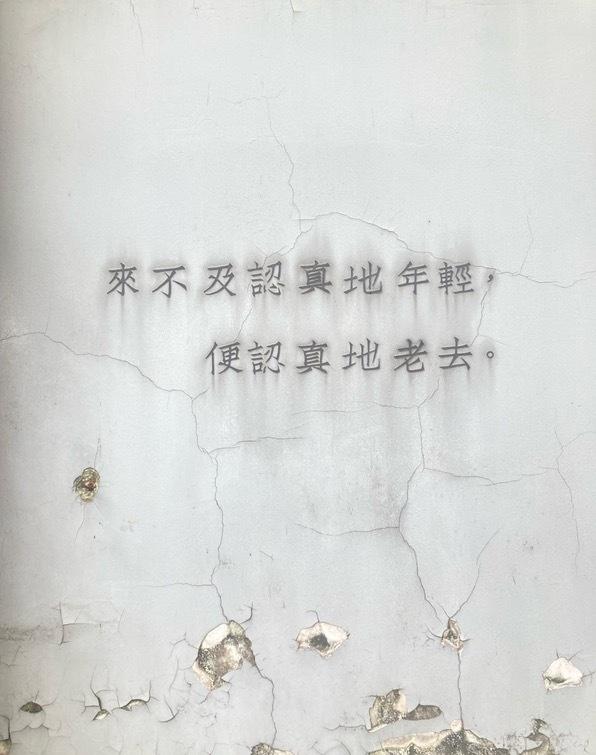 來不及認真地年輕，
便認真地老去。